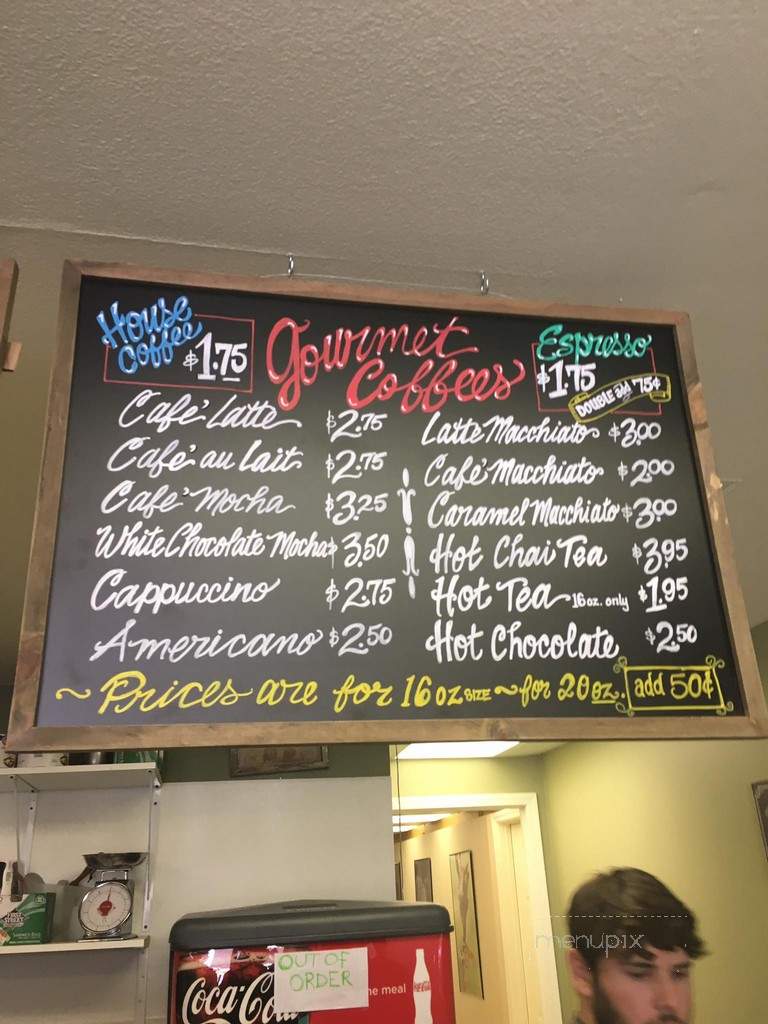 House Coffee $1.75
Gourmet Coffees
Espresso $1.75
DOUBLE add 75¢
Café Latte $2.75
Café au Lait $2.75
Café Mocha $3.25
White Chocolate Mocha $3.50
Cappuccino $2.75
Americano $2.50
Latte Macchiato $3.00
Café Macchiato $2.00
Caramel Macchiato $3.00
Hot Chai Tea $3.95
Hot Tea 16oz. only $1.95
Hot Chocolate $2.50
~ Prices are for 16oz SIZE ~ for 20oz. add 50¢
FIRST STREET
OUT OF ORDER
Coca-Cola
he meal
menupix